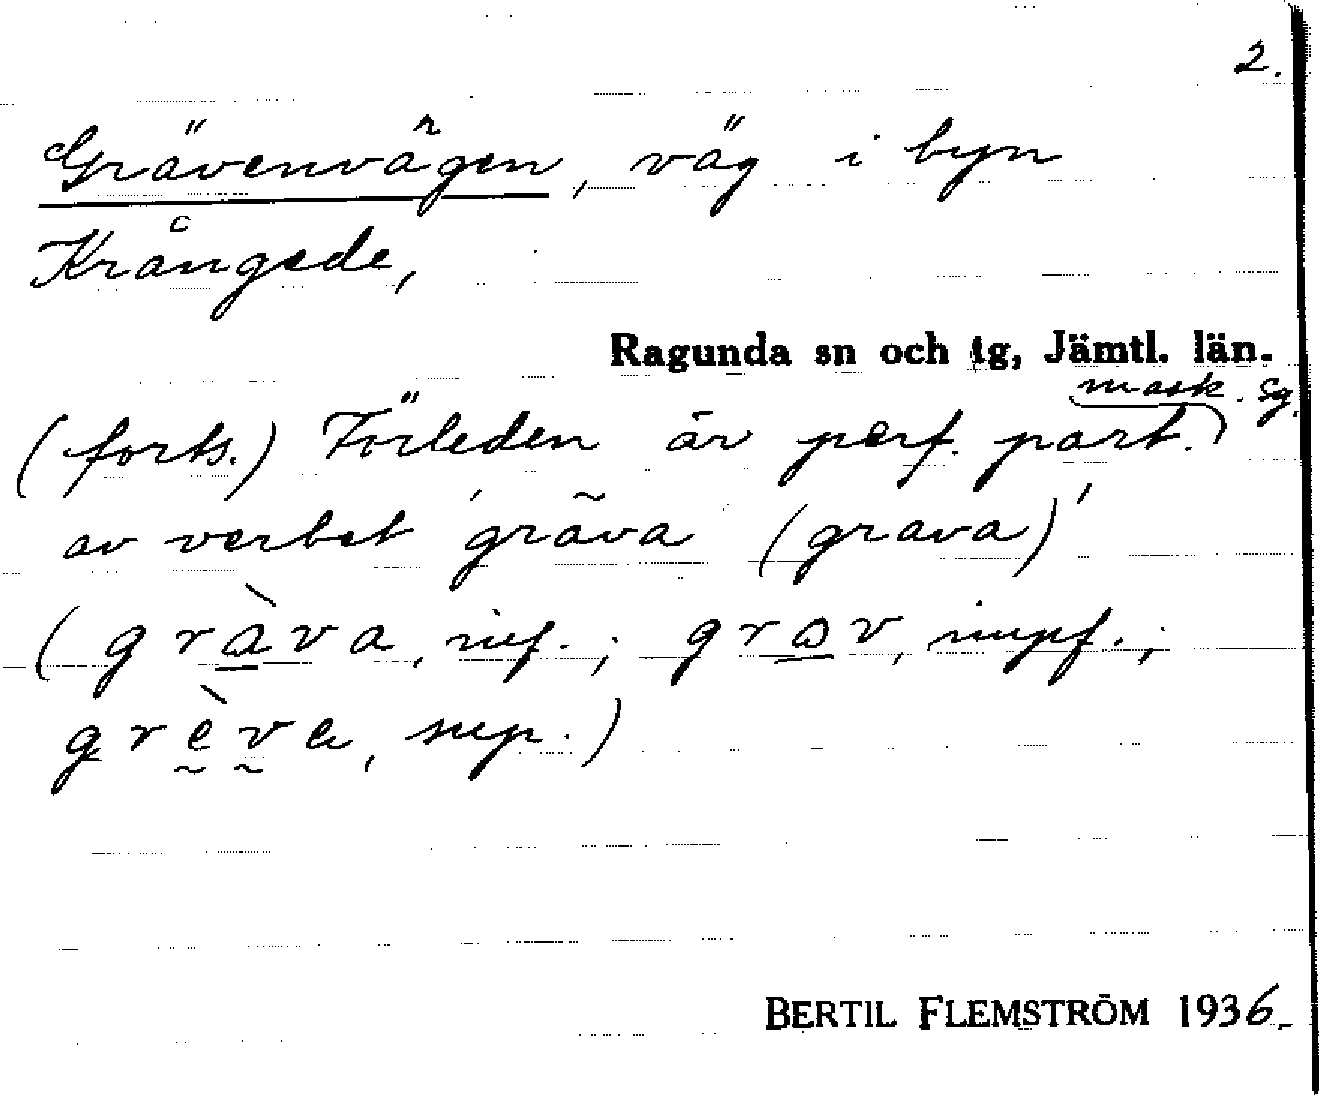 2.
Grävenvägen, väg i byn
Krångede,
Ragunda sn och tg, Jämtl. län.
mask. sg.
(forts.) Förleden är perf. part.
av verbet 'gräva (grava)'
(gràva, inf.; grov, impf.;
grève, sup.)
BERTIL FLEMSTRÖM 1936.